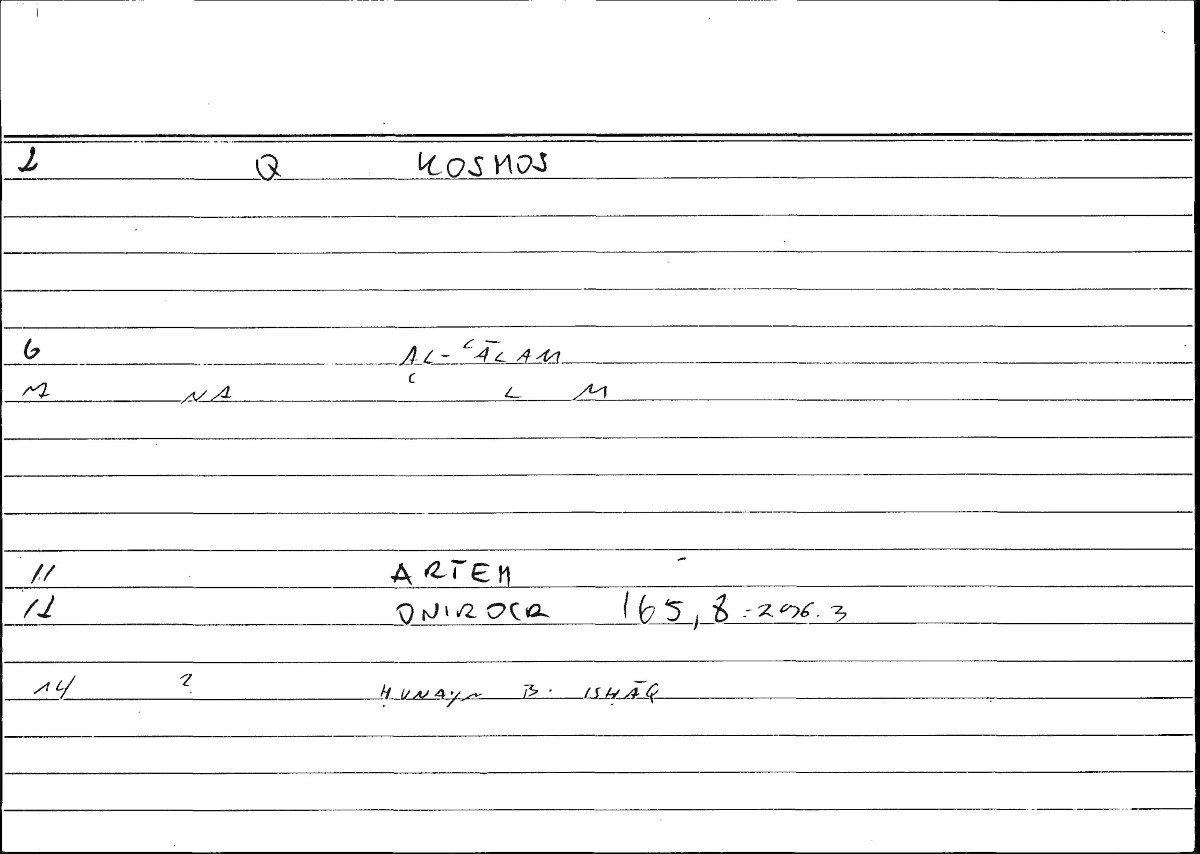 1 Q KOSMOS
6 AL-ʿĀLAM
M NA ʿ L M
11 ARTEM
12 ONIROCR 165,8 = 296.3
14 ? ḤUNAYN B. ISḤĀQ